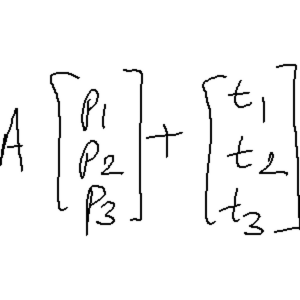 A [p1 p2 p3] + [t1 t2 t3]